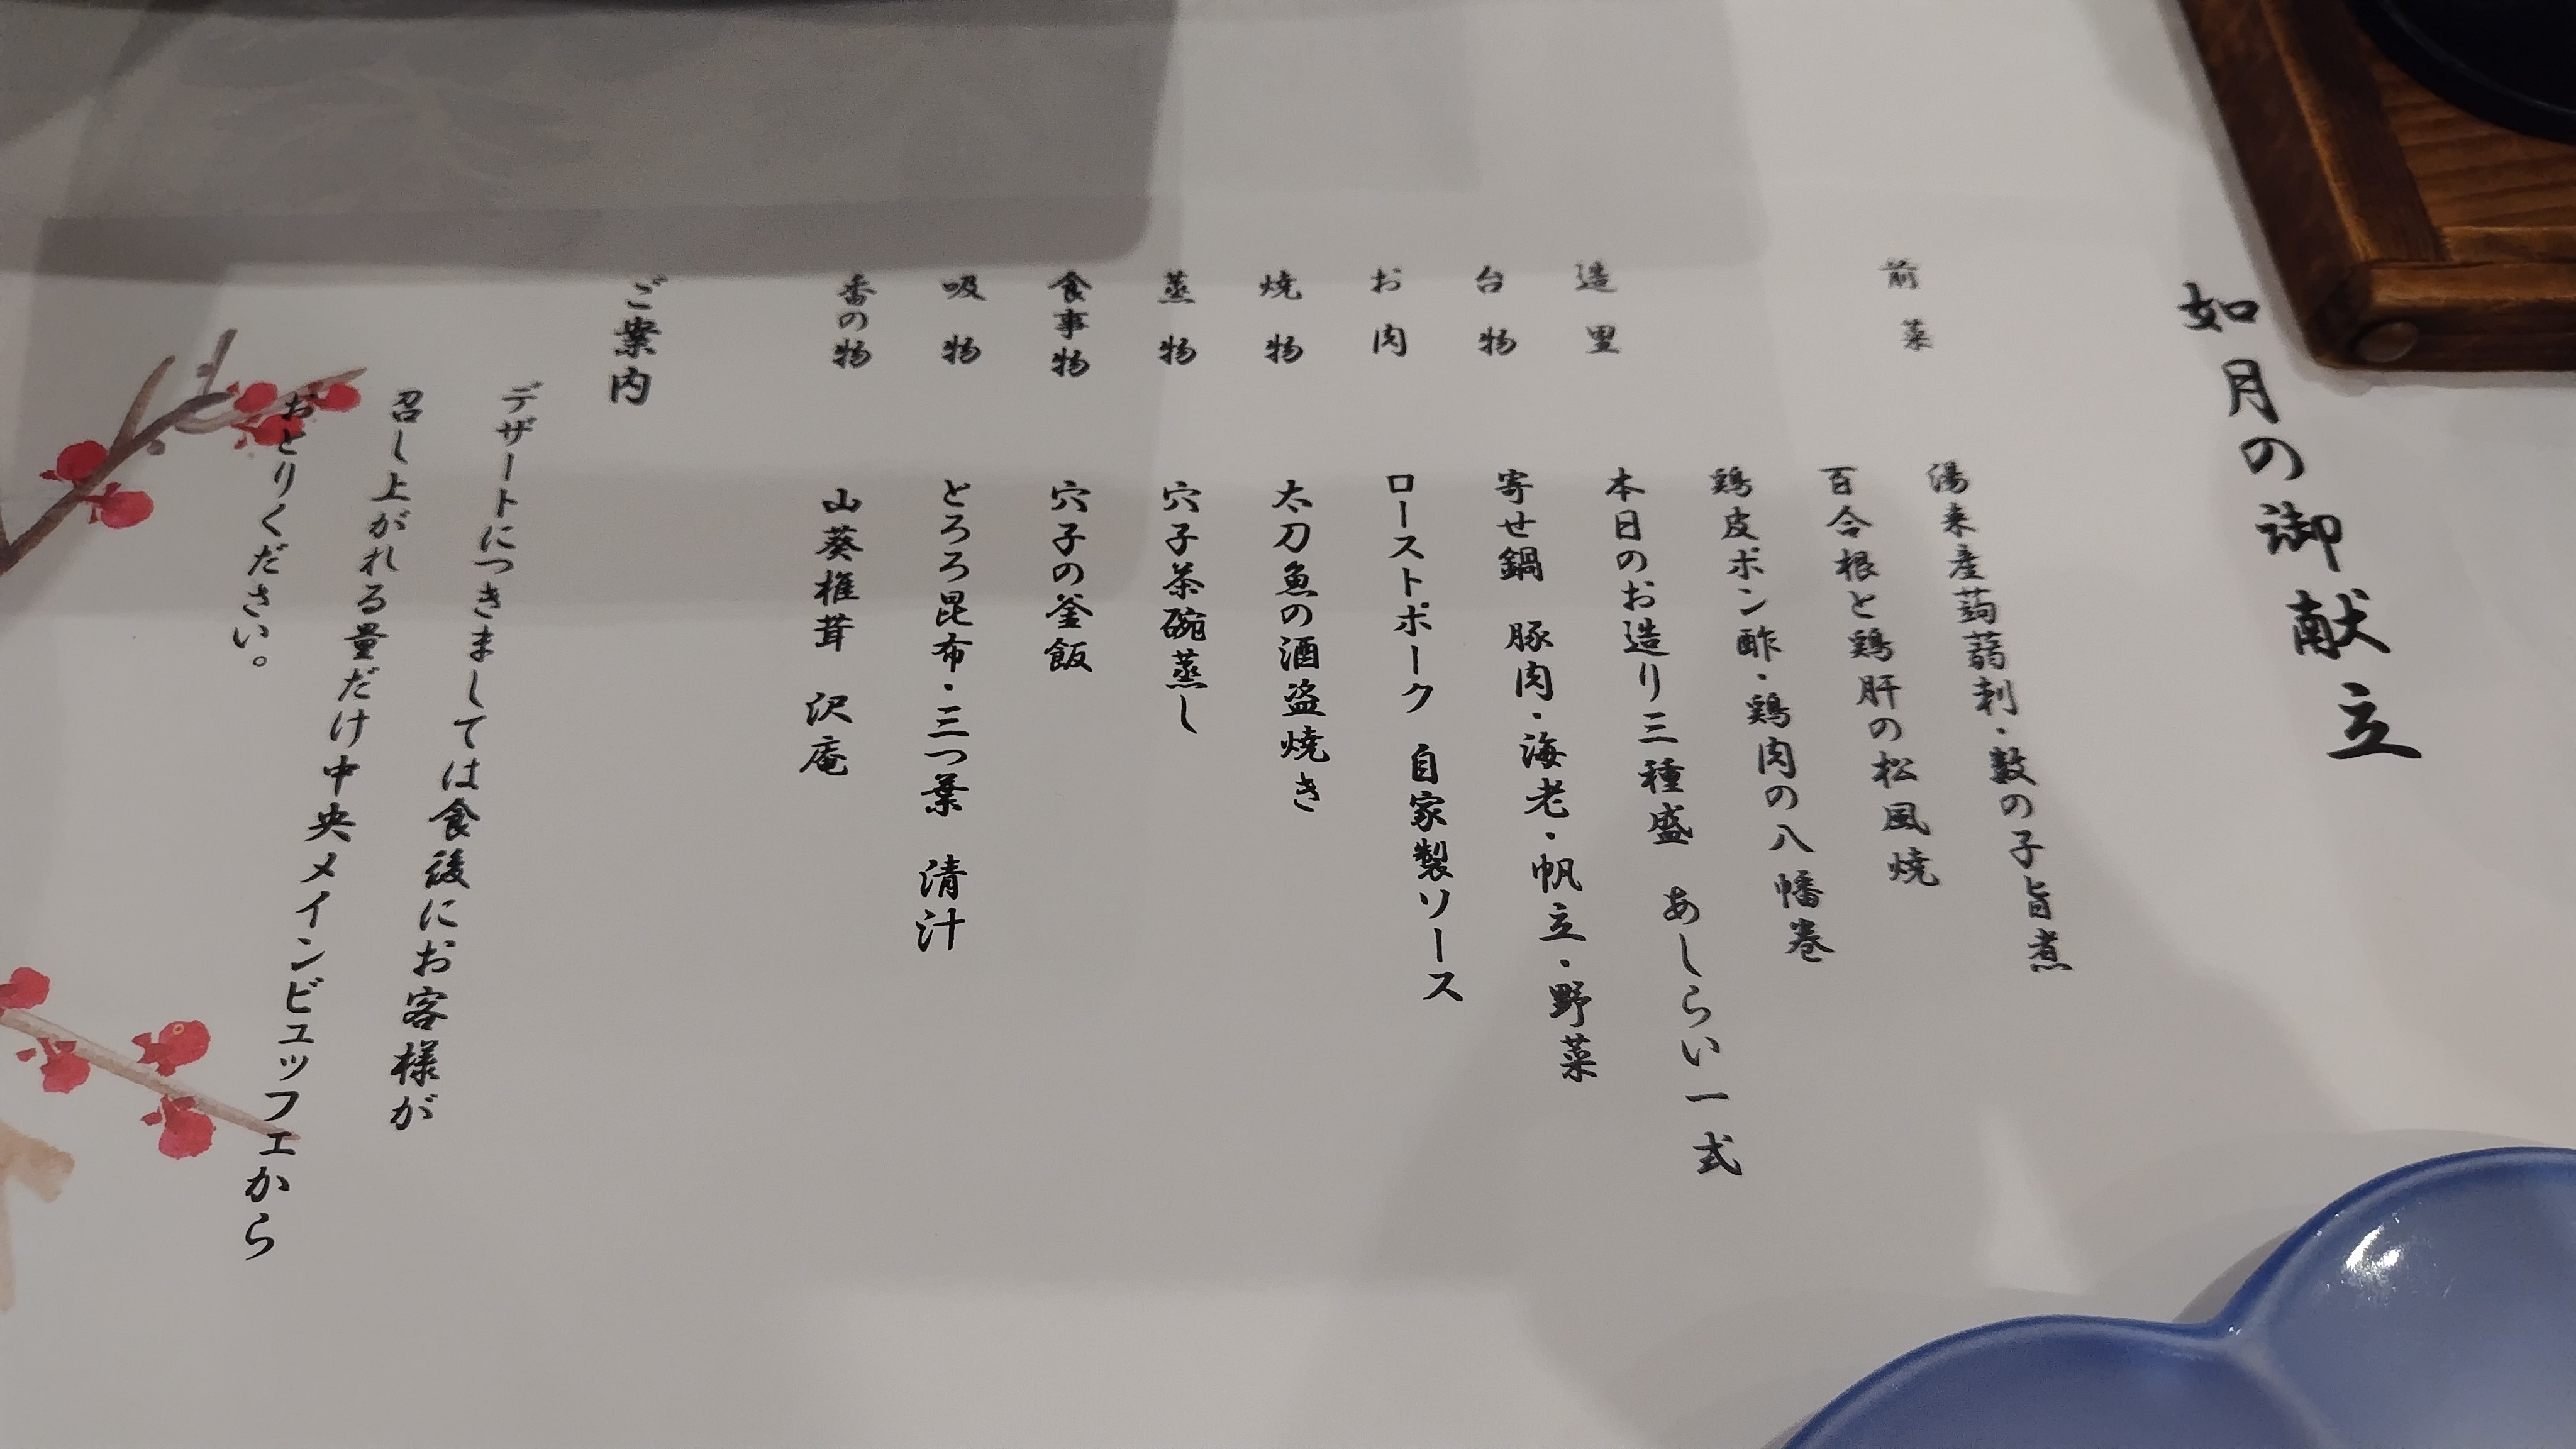 如月の御献立
前菜 湯来産蒟蒻刺・数の子旨煮
百合根と鶏肝の松風焼
鶏皮ポン酢・鶏肉の八幡巻
造里 本日のお造り三種盛 あしらい一式
台物 寄せ鍋 豚肉・海老・帆立・野菜
お肉 ローストポーク 自家製ソース
焼物 太刀魚の酒盗焼き
蒸物 穴子茶碗蒸し
食事物 穴子の釜飯
吸物 とろろ昆布・三つ葉 清汁
香の物 山葵椎茸 沢庵
ご案内
デザートにつきましては食後にお客様が
召し上がれる量だけ中央メインビュッフェから
おとりください。